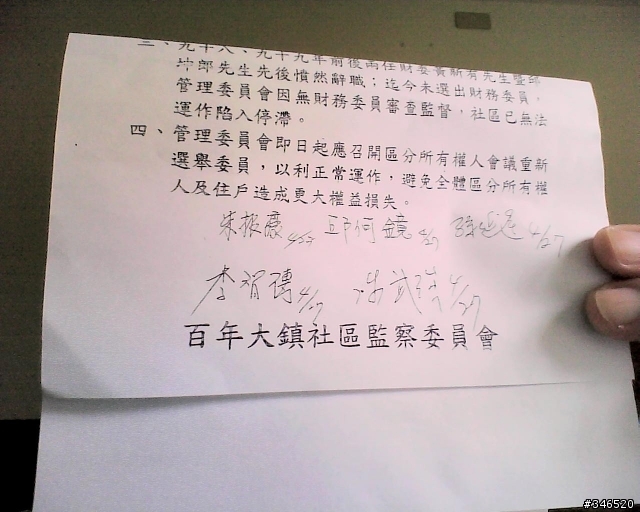 三、九十八、九十九年前後兩任財委黃新有先生暨邱
坤郎先生先後憤然辭職；迄今未選出財務委員，
管理委員會因無財務委員審查監督，社區已無法
運作陷入停滯。
四、管理委員會即日起應召開區分所有權人會議重新
選舉委員，以利正常運作，避免全體區分所有權
人及住戶造成更大權益損失。
4/27 邱何鏡 4/27 4/27
李 4/27 4/27
百年大鎮社區監察委員會
#346520